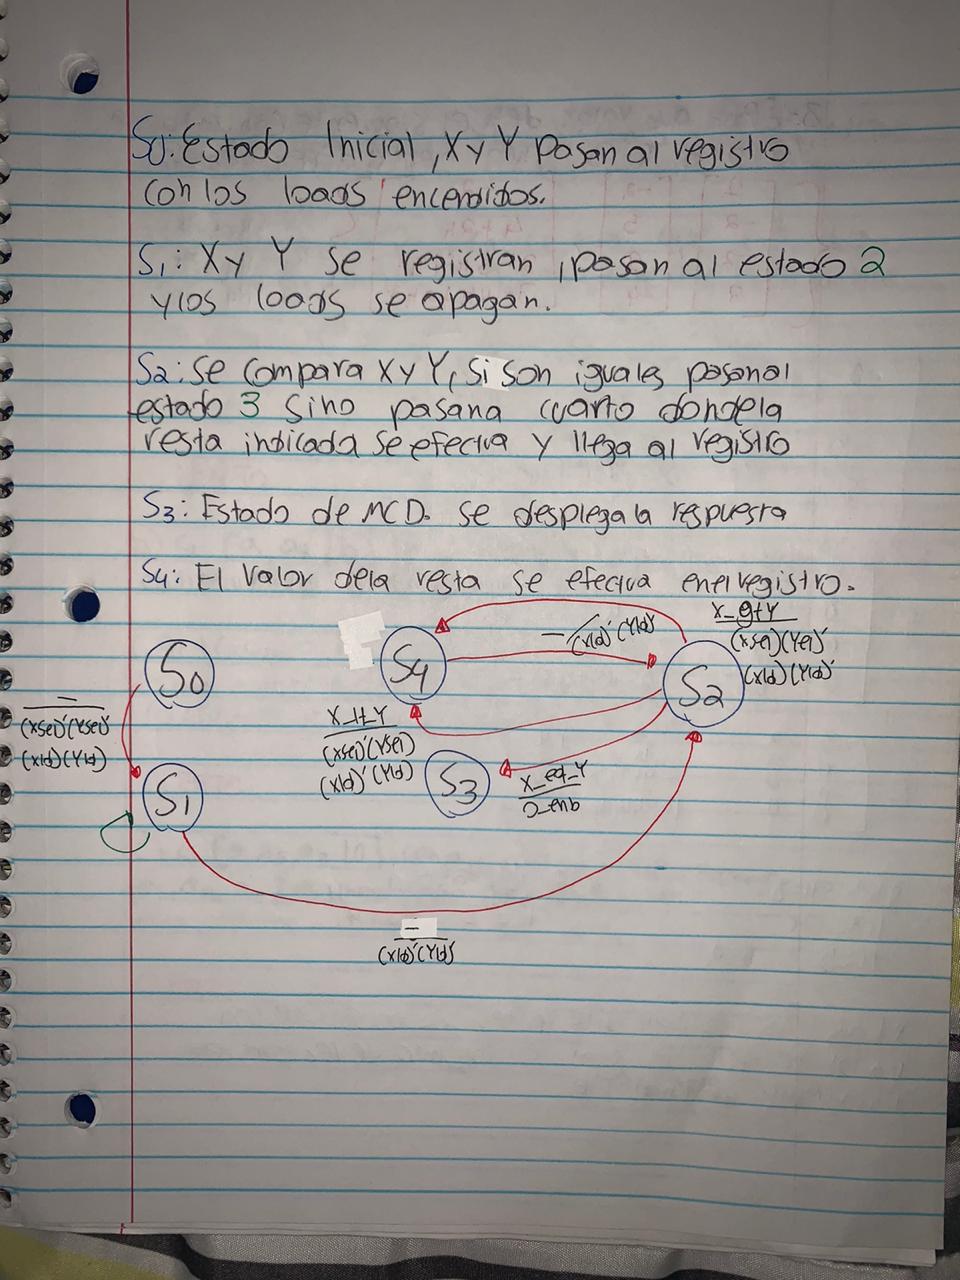 S0: Estado Inicial, X y Y pasan al registro
con los loads encendidos.
S1: X y Y se registran, pasan al estado 2
y los loads se apagan.
S2: Se compara X y Y, Si son iguales pasan al
estado 3 sino pasan a cuarto donde la
resta indicada se efectua y llega al registro
S3: Estado de MCD. se desplega la respuesta
S4: El valor de la resta se efectua en el registro.
X_gt_Y
(xsel)(Ysel)'
(xld)(Yld)'
—
(xld)'(Yld)'
S0
S4
S2
—
(xsel)'(Ysel)'
(xld)(Yld)
X_lt_Y
(xsel)'(Ysel)
(xld)'(Yld)
S1
S3
X_eq_Y
O_enb
—
(xld)'(Yld)'